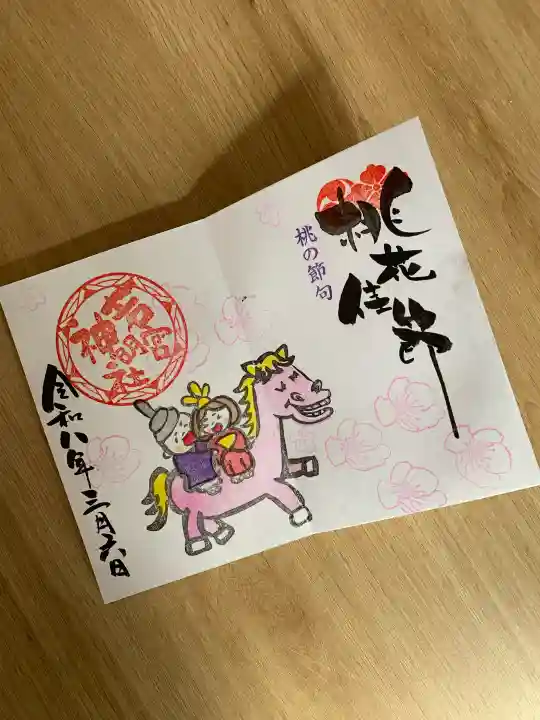 桃花佳節
桃の節句
若宮
神明社
令和八年三月六日